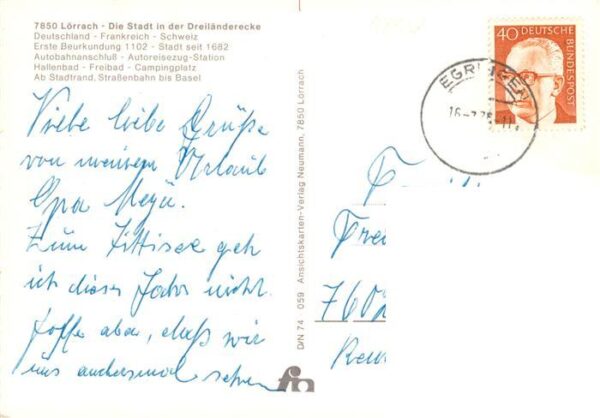 7850 Lörrach - Die Stadt in der Dreiländerecke
Deutschland - Frankreich - Schweiz
Erste Beurkundung 1102 - Stadt seit 1682
Autobahnanschluß - Autoreisezug-Station
Hallenbad - Freibad - Campingplatz
Ab Stadtrand, Straßenbahn bis Basel
Viele liebe Grüße
von meinem Urlaub
Opa
Zum geh
ich dieses Jahr nicht.
Hoffe aber, daß wir
uns andersmal sehen
D/N 74 059 Ansichtskarten-Verlag Neumann, 7850 Lörrach
40
DEUTSCHE
BUNDESPOST
EGRINGEN
760